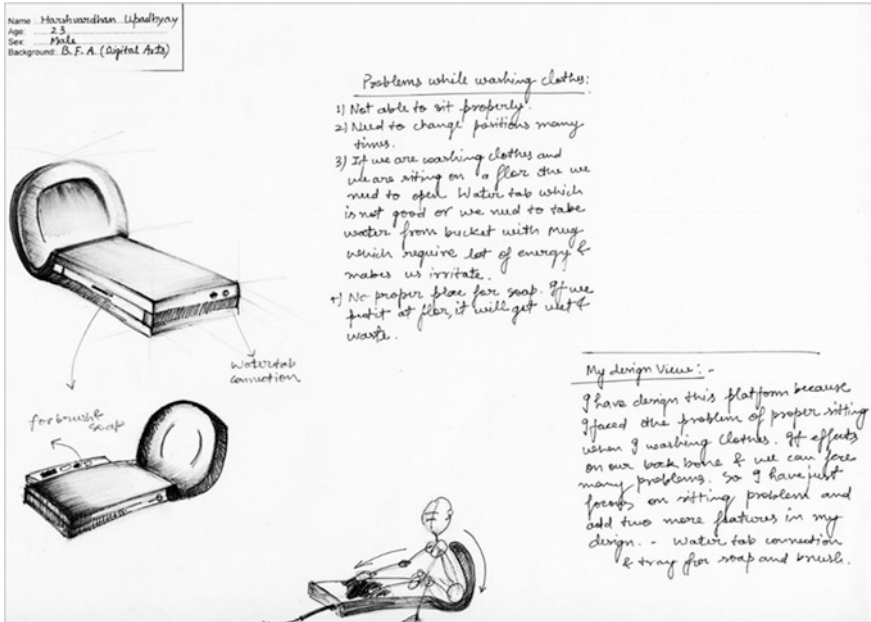 Name : Harshvardhan Upadhyay
Age: 23
Sex: Male
Background: B.F.A. (Digital Arts)
Problems while washing clothes:
1) Not able to sit properly.
2) Need to change positions many
times.
3) If we are washing clothes and
we are siting on a flor the we
need to open Water tab which
is not good or we need to take
water from bucket with mug
which require lot of energy &
makes us irritate.
4) No proper place for soap. If we
put it at flor, it will get wet &
waste.
Water tab
connection
for brush &
soap
My design View: -
I have design this platform because
I faced the problem of proper sitting
when I washing clothes. It effects
on our back bone & we can face
many problems. So I have just
focus on sitting problem and
add two more features in my
design. - Water tab connection
& tray for soap and brush.